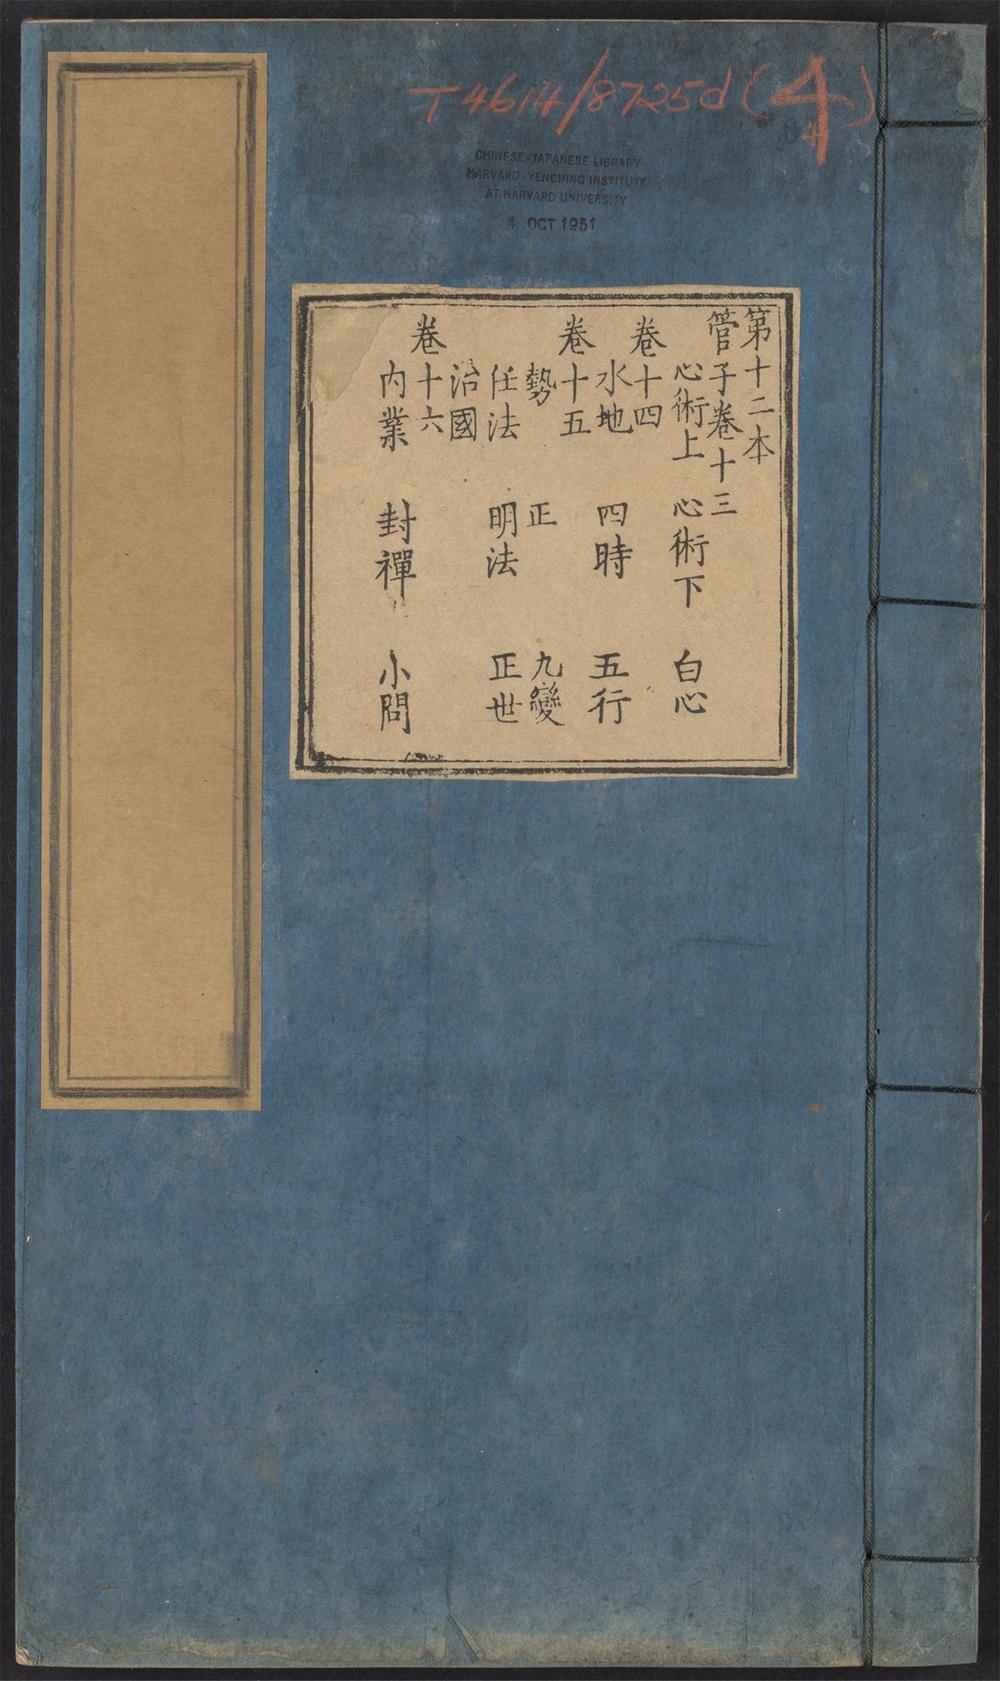 T4614/8725d(4)
CHINESE-JAPANESE LIBRARY
HARVARD-YENCHING INSTITUTE
AT HARVARD UNIVERSITY
4 OCT 1951
第十二本
管子卷十三
心術上 心術下 白心
卷十四
水地 四時 五行
卷十五
勢 正 九變
任法 明法 正世
治國
卷十六
內業 封禪 小問